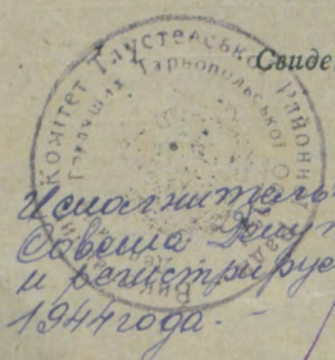 Свиде
Комітет Тлустенської Районної
Тарнопольської
Исполнитель
Совета Депут
и регистрируе
1944 года.-